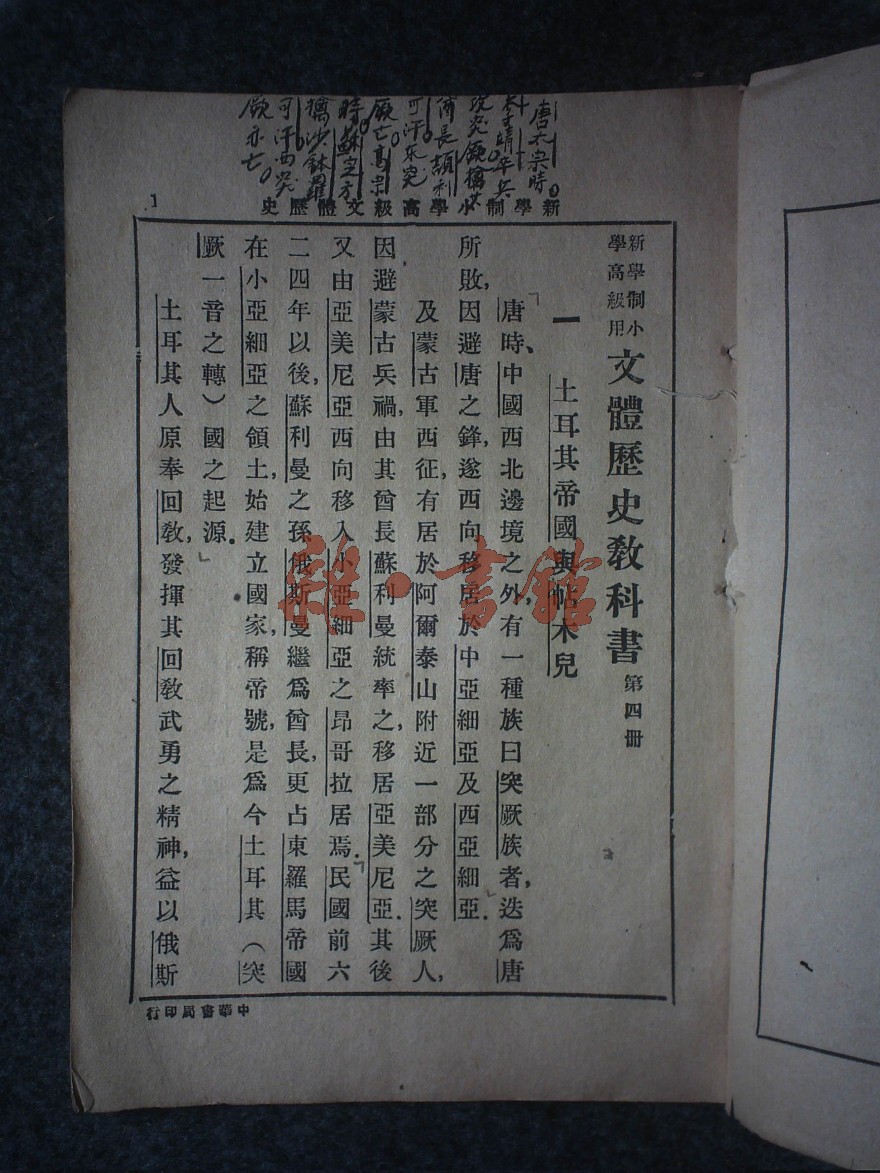 唐太宗時
李靖率兵
突厥擒其
酋長頡利
可汗東突
厥亡高宗
時蘇定方
擒沙鉢羅
可汗西突
厥亦亡
新學制小學高級文體歷史
1
新學制小學高級用
文體歷史教科書 第四册
一 土耳其帝國與帖木兒
唐時、中國西北邊境之外,有一種族曰突厥族者,迭爲唐
所敗,因避唐之鋒,遂西向移居於中亞細亞及西亞細亞.
及蒙古軍西征,有居於阿爾泰山附近一部分之突厥人,
因避蒙古兵禍,由其酋長蘇利曼統率之,移居亞美尼亞.其後
又由亞美尼亞西向移入小亞細亞之昂哥拉居焉.民國前六
二四年以後,蘇利曼之孫俄斯曼繼爲酋長,更占東羅馬帝國
在小亞細亞之領土,始建立國家,稱帝號,是爲今土耳其(突
厥一音之轉)國之起源.
土耳其人原奉回敎,發揮其回敎武勇之精神,益以俄斯
中華書局印行
雜·書館